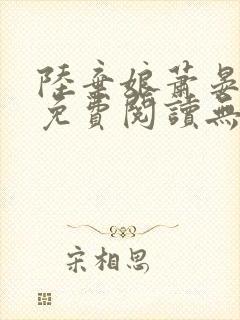 陸棄娘蕭晏
免費閱讀無
宋相思